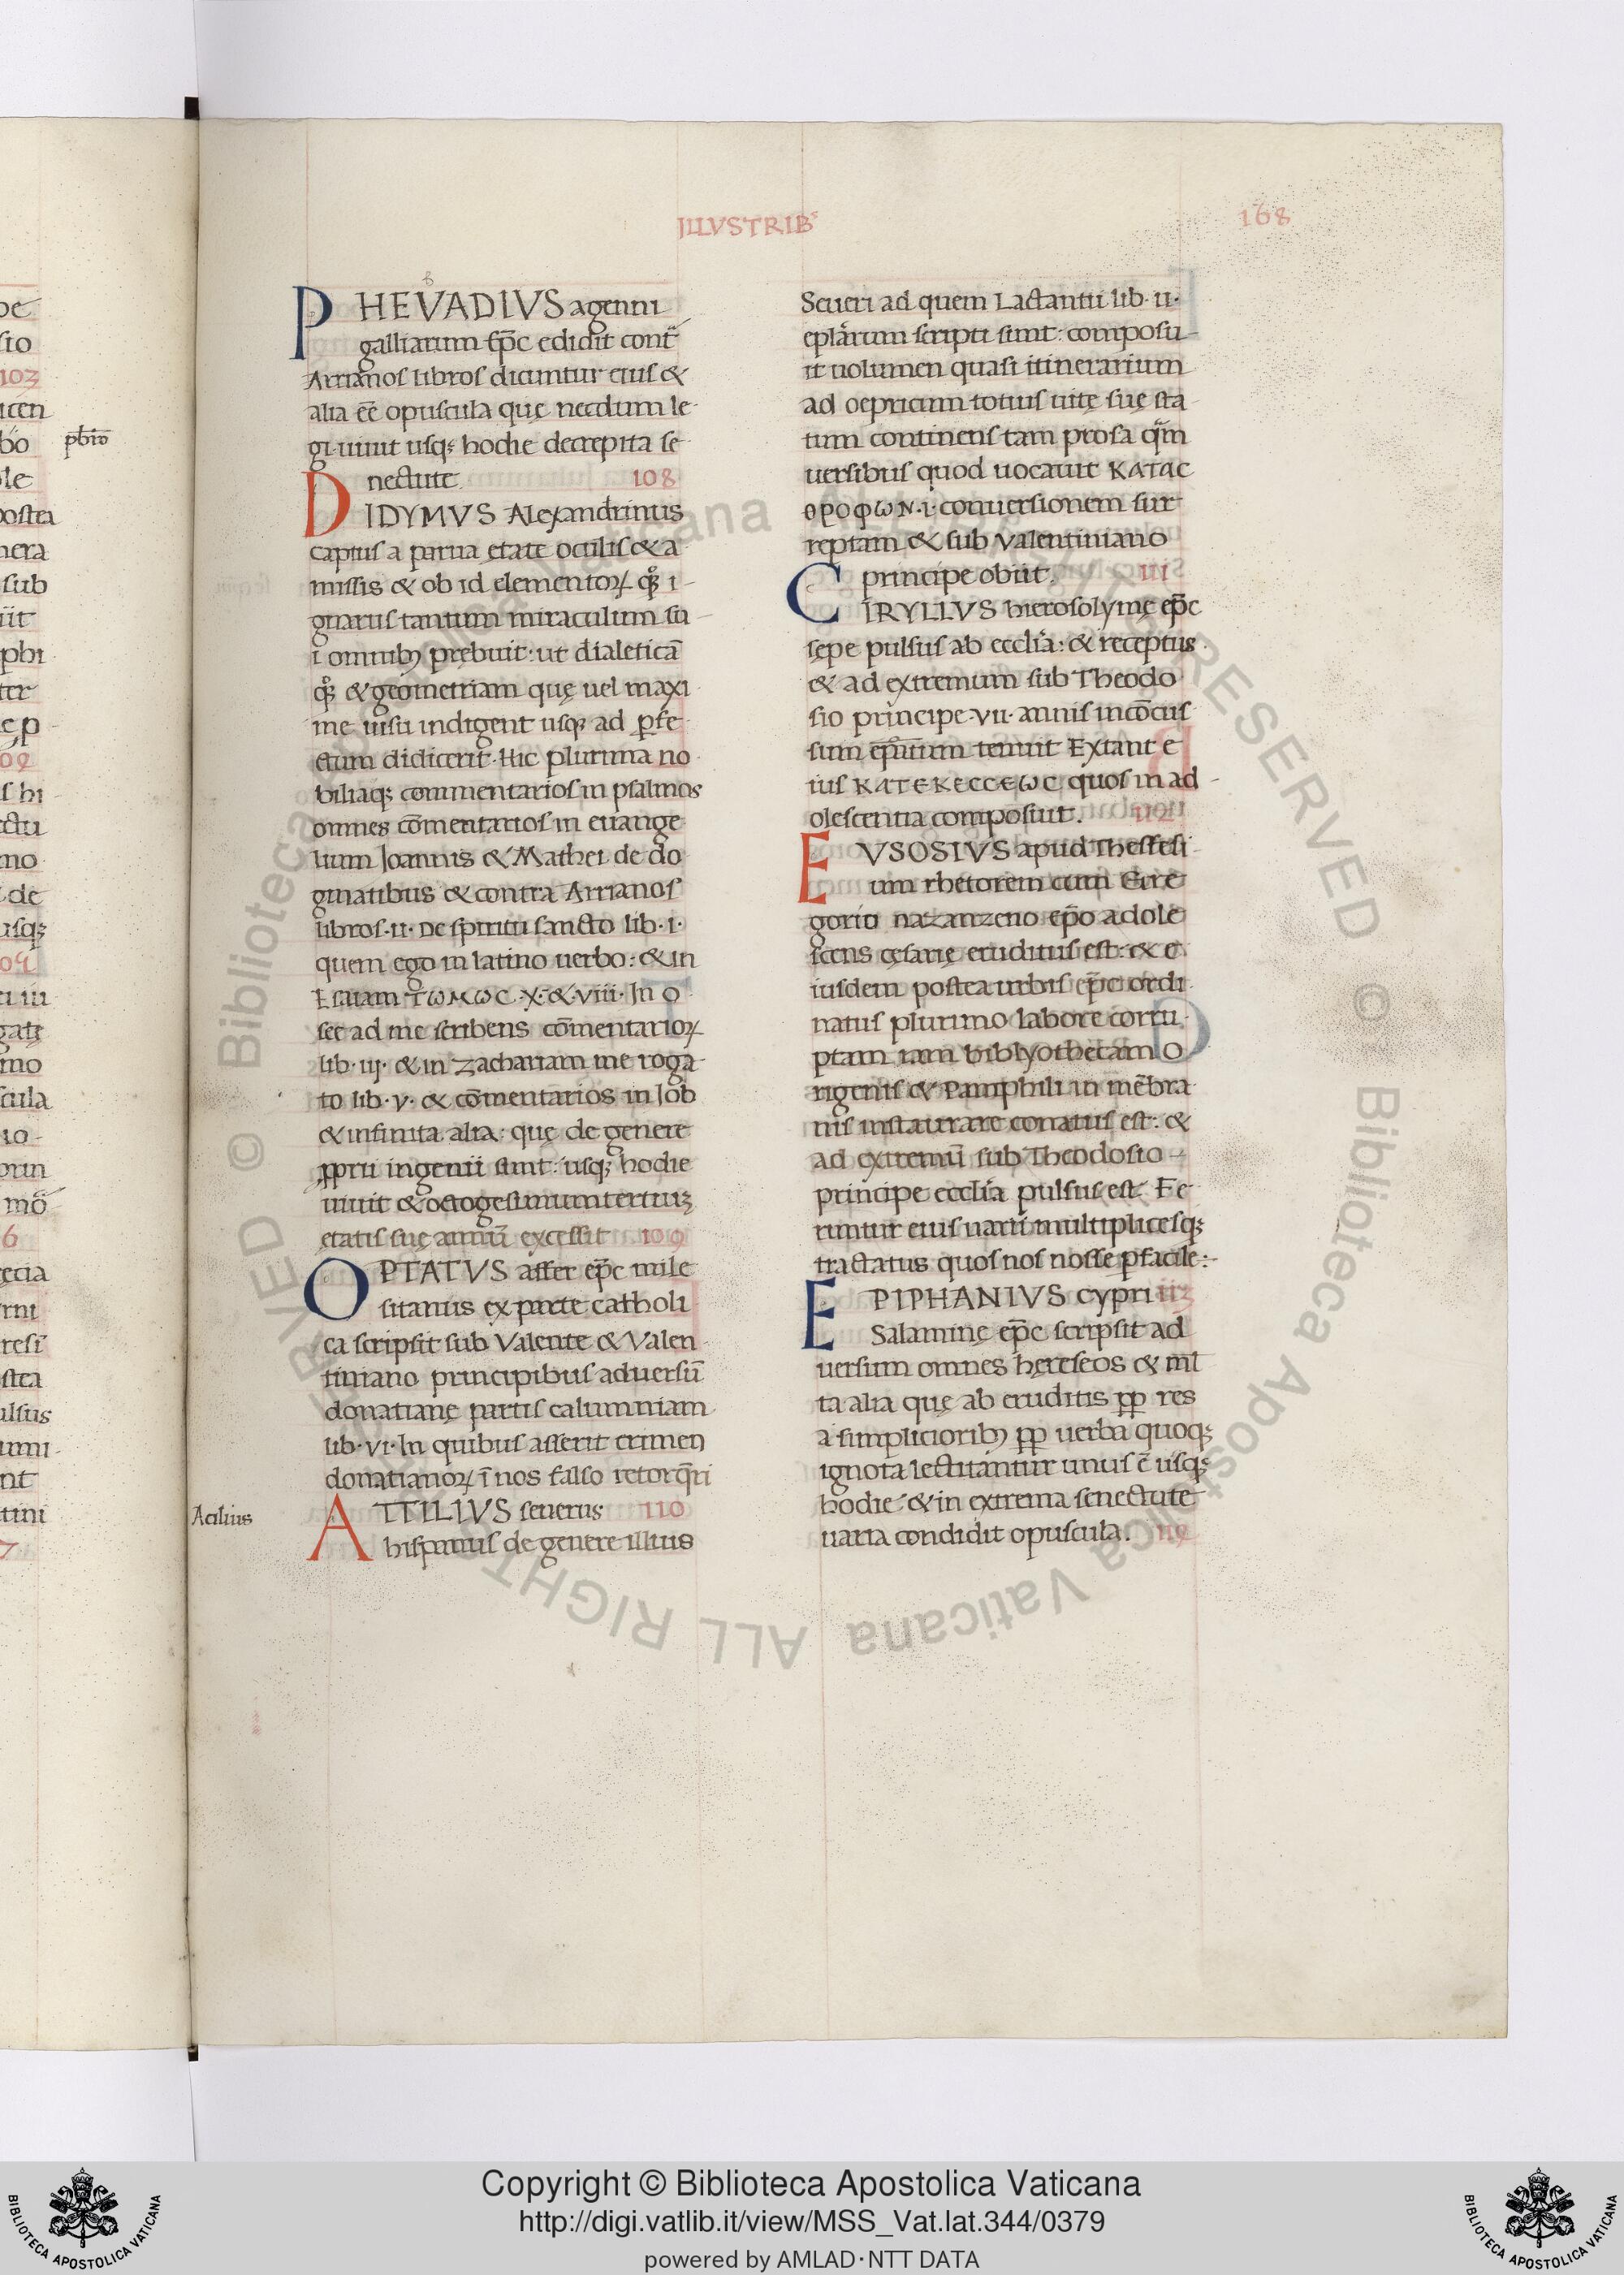 JLLVSTRIBꝰ 168
PHEVADIVS agenni
galliarum ep̄c edidit cont̃
Arrianos libros dicuntur eius &
alia eē opuscula quę necdum le
gi uiuit usq; hodie decrepita se
nectute 108
DIDYMVS Alexandrinus
captus a parua ętate oculis & a
missis & ob id elementoꝝ qͦꝫ i
gnarus tantum miraculum sū
i omnibꝫ prębuit: ut dialeticā
qͦꝫ & geometriam quę uel maxi
me uisu indigent usq; ad ꝑfe
ctum didicerit. Hic plurima no
biliaq; commentarios in psalmos
omnes cōmentarios in euange
lium Joannis & Mathei de do
gmatibus & contra Arrianos
libros .ii. De spiritu sancto lib. i.
quem ego in latino uerbo: & in
Esaiam ΤωΜωC .X. & .viii. In O
see ad me scribens cōmentarioꝝ
lib. iij. & in Zachariam me roga
to lib. v. & cōmentarios in Job
& infinita alia: quę de genere
ꝓprii ingenii sunt: usq; hodie
uiuit & octogesimum tertiuꝫ
ętatis suę annū excessit 109
OPTATVS affer ep̄c mile
sitanus ex parte catholi
ca scripsit sub Valente & Valen
tiniano principibus aduersū
donatianę partis calumniam
lib. vi. In quibus asserit crimen
donatianoꝝ ī nos falso retorq̄ri
Acilius
ATTILIVS seuerus 110
hispanus de genere illius
Seueri ad quem Lactantii lib. ii.
ep̄larum scripti sunt: composu
it uolumen quasi itinerarium
ad oepricum totius uitę suę sta
tum continens tam prosa qm̄
uersibus quod uocauit ΚΑΤΑC
ΟΡΟΦωΝ .i. conuersionem sur
reptam & sub Valentiniano
principe obiit. 111
CIRYLLVS hierosolymę ep̄c
sępe pulsus ab eccl̄ia: & receptus
& ad extremum sub Theodo
sio principe .vii. annis incōcus
sum ep̄atum tenuit Extant e
ius ΚΑΤΕΚΕCCΕωC quos in ad
olescentia composuit. 112
EVSOSIVS apud Thessesi
um rhetorem cum Gre
gorio nazanzeno ep̄o adole
scens cęsarię eruditus est: & e
iusdem postea urbis ep̄c ordi
natus plurimo labore corru
ptam iam biblyothecam O
rigenis & Pamphili in mēbra
nis instaurare conatus est: &
ad extremū sub Theodosio
principe eccl̄ia pulsus est. Fe
runtur eius uarii multiplicesq;
tractatus quos nos nosse ꝑfacile:
EPIPHANIVS cypri 113
Salaminę ep̄c scripsit ad
uersum omnes hęreseos & ml̄
ta alia quę ab eruditis ꝓꝑ res
a simplicioribꝫ ꝓꝑ uerba quoq;
ignota lectitantur unus ē usq;
hodie & in extrema senectute
uaria condidit opuscula.
Copyright © Biblioteca Apostolica Vaticana
http://digi.vatlib.it/view/MSS_Vat.lat.344/0379
powered by AMLAD·NTT DATA
BIBLIOTECA APOSTOLICA VATICANA
BIBLIOTECA APOSTOLICA VATICANA